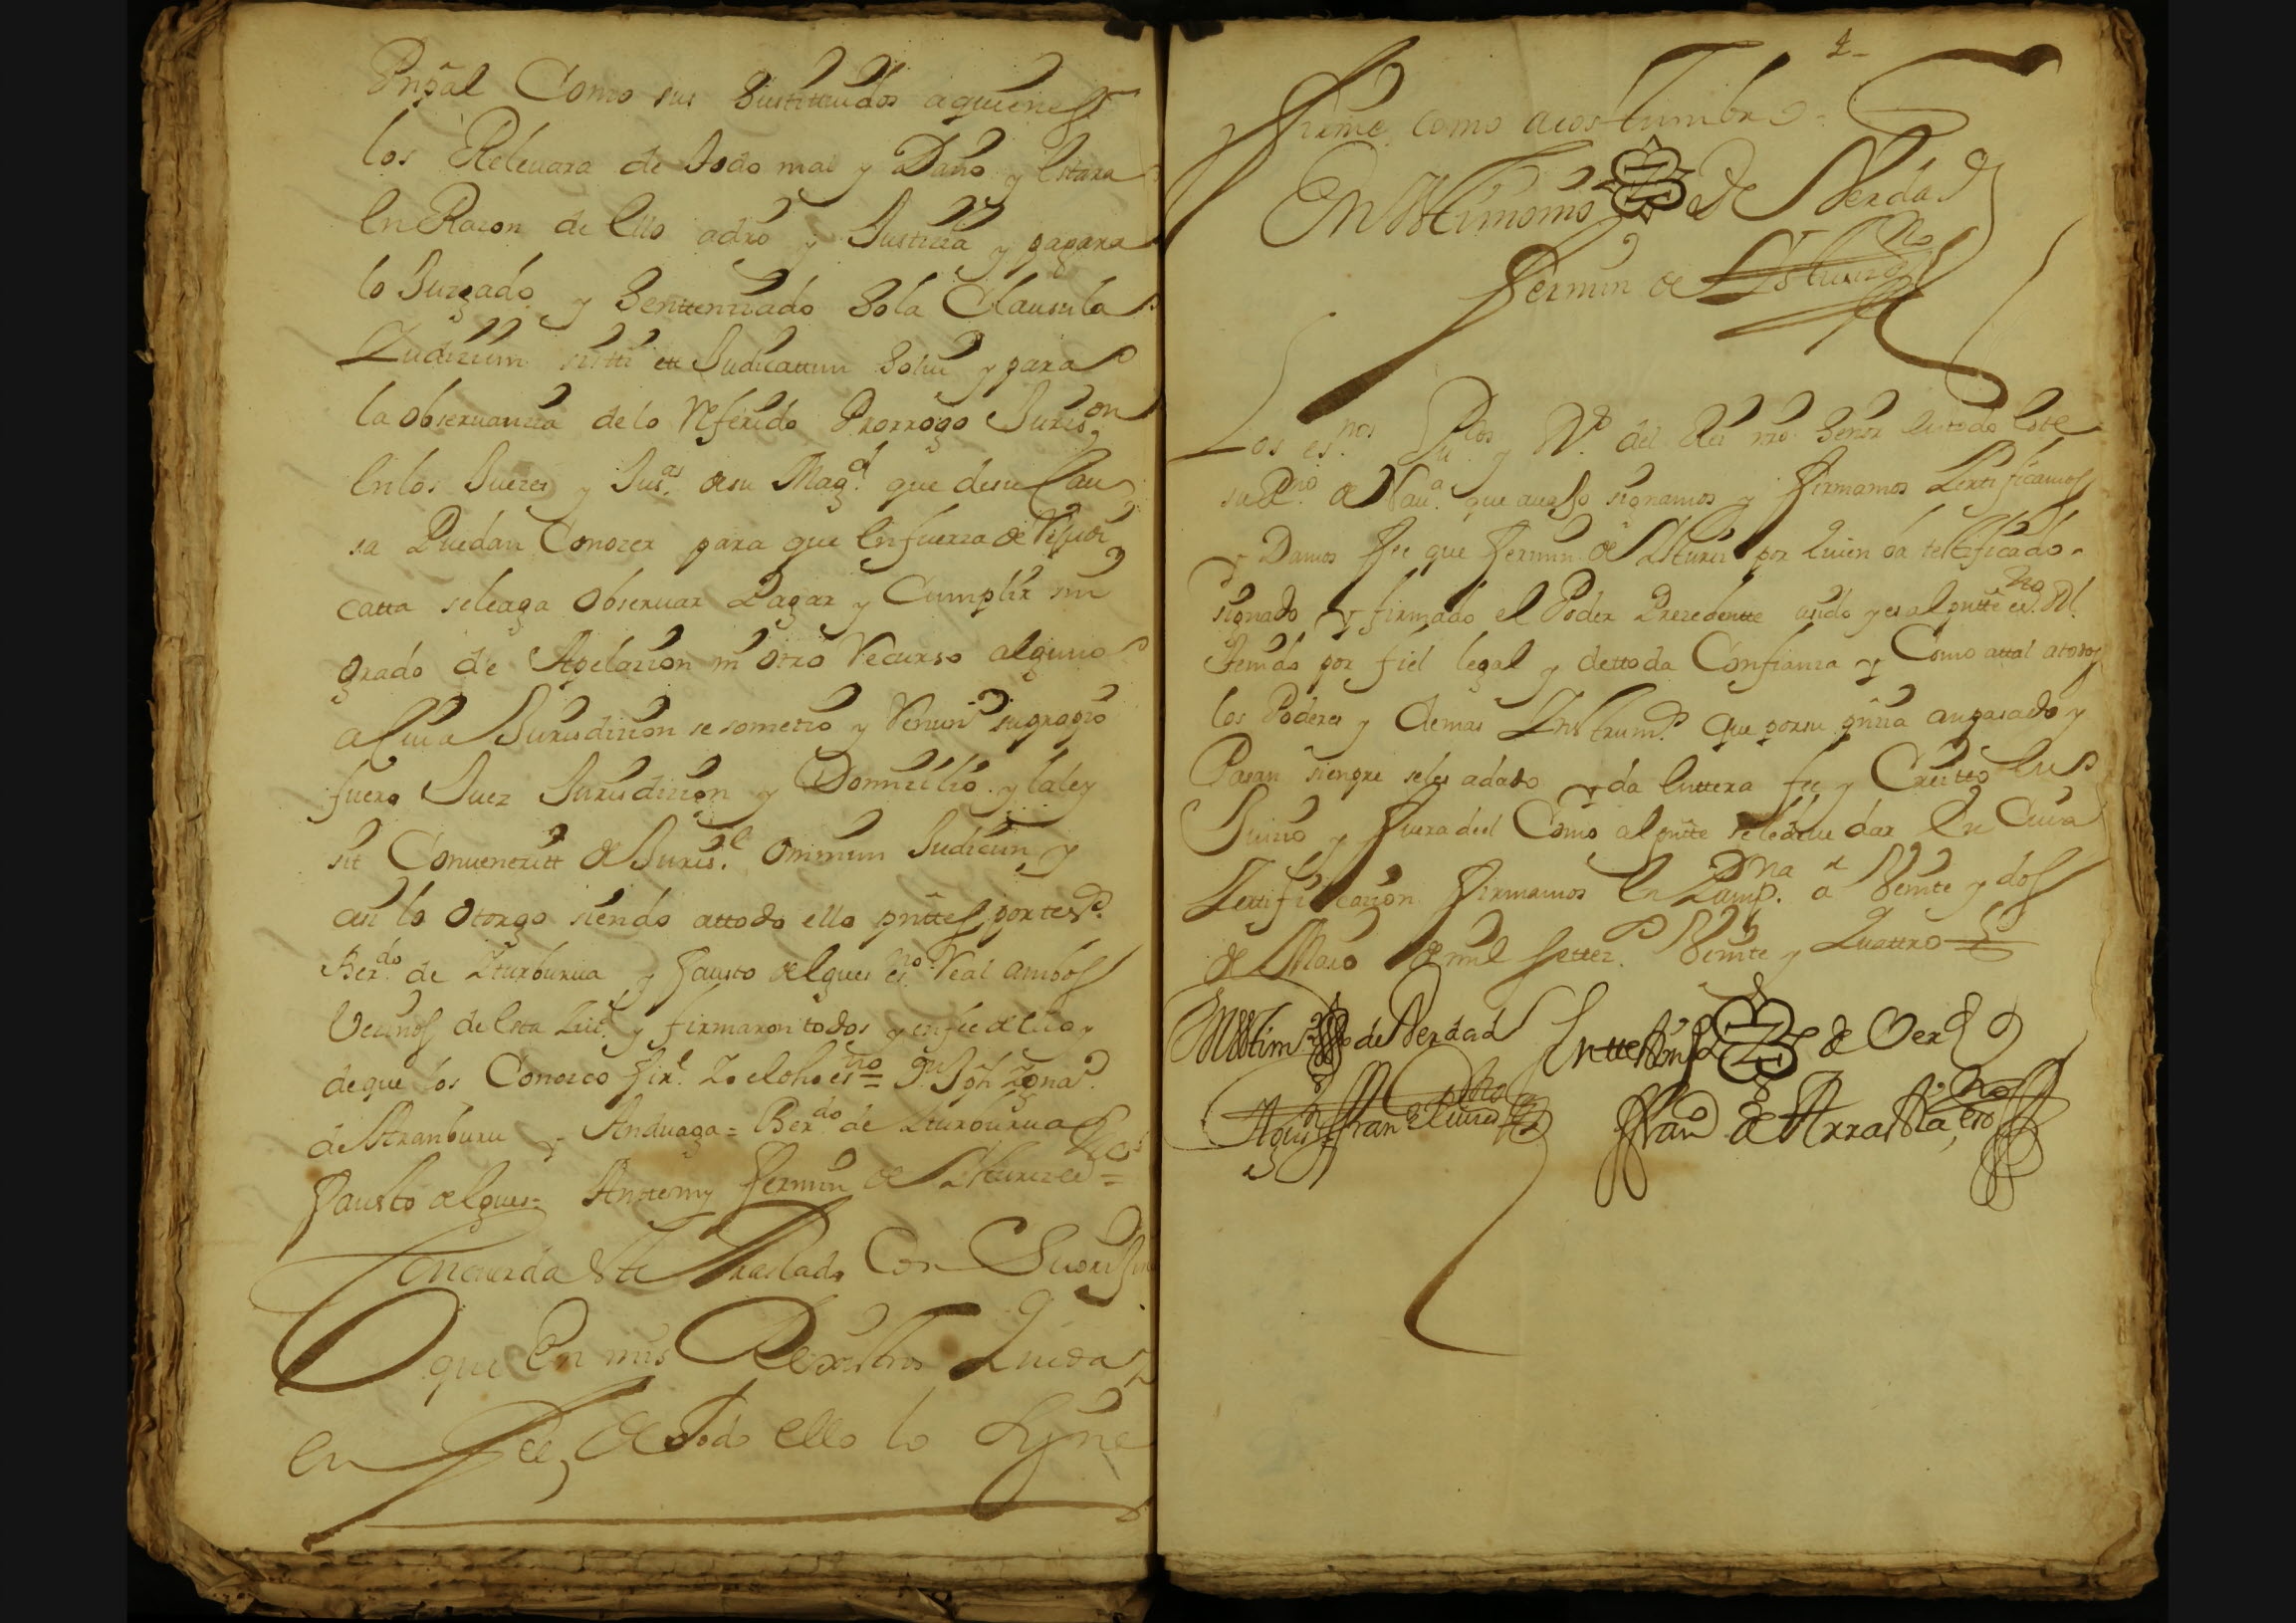 Prinzal Como sus Sustituidos aquienes
los Releuara de todo mal y Daño y Estara
En Razon de Ello adro y Justizia y pagara
lo Juzgado y Senttenziado Sola Clausula
Judizium sistti ett Judicattum Solui y para
la obseruanzia delo Referido Prorrogo Juris.on
Enlos Juezes y Jus.as desu Mag.d que desu Cau
sa Puedan Conozer para que Enfuerza de
catta seleaga obseruar Pagar y Cumplir sin
grado de Apelazion ni otro Recurso alguno
a Cuia Jurisdizion se sometio y Renun.o su propio
fuero Juez Jurisdizion y Domizilio y la ley
sit Conueneritt de Juris.e omnium Judicum y
asi lo otorgo siendo attodo ello pnttes por tesos.
Ber.do de Yturburua y Fausto elgues es.no Real ambos
Vecinos de Esta Ziu.d y firmaron todos y en fee de ello y
de que los Conozco fir.e Yo el dho es.no =
de Aranburu y Anduaga = Ber.do de Yturburua
Fausto elgues = Anttemy Fermin de Ysturiz es.no =
Concuerda este Traslado Con Suorijin
que En mis Rexistros Queda y
en Fee de todo ello lo Signe
4
y firme como acostumbro =
En testimonio de Verdad
Fermin de Ysturiz es.no
Los es.nos Pu.cos y R.s del Rei nro Señor entodo Este
su R.no de Nau.a que auajo signamos y firmamos Zertificamos
y Damos fee que Fermin de Ysturiz por Quien ba testificado
signado y firmado el Poder Prezedentte asido y es al pntte es.no Rl.
Tenido por fiel legal y dettoda Confianza y Como attal atodos
los Poderes y demas Instrum.os que porsu pnzia anpasado y
Pasan siempre seles adado y da Enttera fee y Creditto En
Juizio y Fuera del Como al pntte seledeue dar En Cuia
Zertificazion firmamos En Pamp.na a Veinte y dos
de Marzo de mil settez.s Veinte y Quattro
En testim.o de Verdad
En testim.o de Verd
Fran.co de Arrastia, es.no